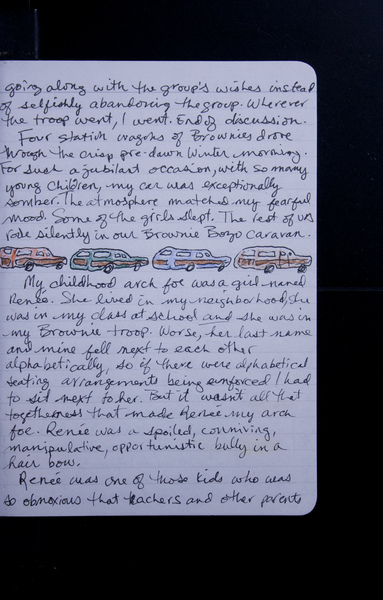 going along with the group's wishes instead
of selfishly abandoning the group. Wherever
the troop went, I went. End of discussion.
Four station wagons of Brownies drove
through the crisp pre-dawn Winter morning.
For such a jubilant occasion, with so many
young children, my car was exceptionally
somber. The atmosphere matches my fearful
mood. Some of the girls slept. The rest of us
rode silently in our Brownie Bozo Caravan.
My childhood arch foe was a girl named
Reneé. She lived in my neighborhood, she
was in my class at school and she was in
my Brownie troop. Worse, her last name
and mine fell next to each other
alphabetically, so if there were alphabetical
seating arrangements being enforced I had
to sit next to her. But it wasn't all that
togetherness that made Reneé my arch
foe. Reneé was a spoiled, conniving,
manipulative, opportunistic bully in a
hair bow.
Reneé was one of those kids who was
so obnoxious that teachers and other parents